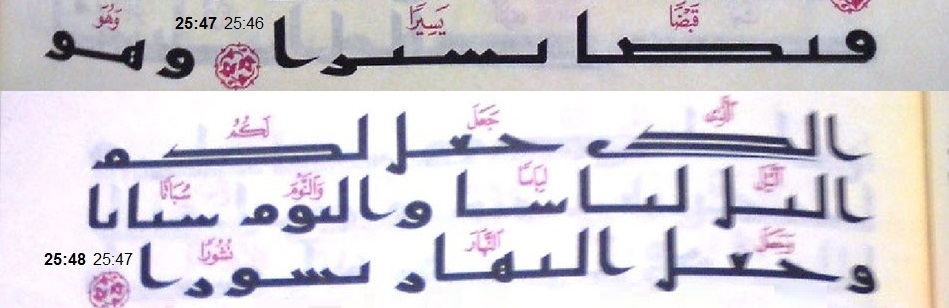 قَبْضًا يَسِيرًا 25:47 25:46 وَهُوَ
قبضا يسيرا وهو
الَّذِى جَعَلَ لَكُمُ
الذى جعل لكم
الَّيْلَ لِبَاسًا وَالنَّوْمَ سُبَاتًا
اليل لباسا والنوم سباتا
وَجَعَلَ النَّهَارَ نُشُورًا 25:48 25:47
وجعل النهار نشورا